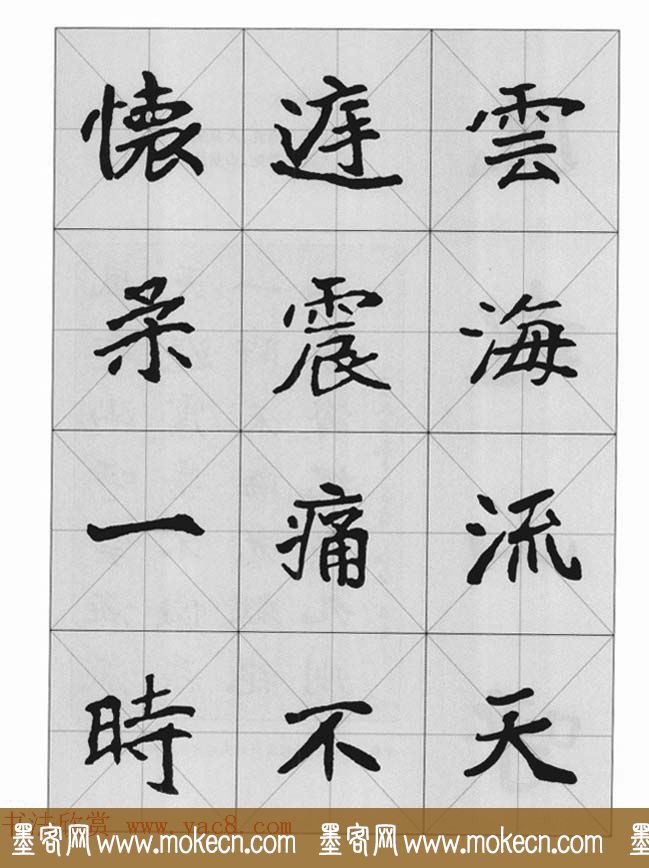 雲海流天
震痛不
懷柔一時
书法欣赏 www.yac8.com
墨客网 www.mokecn.com 墨客网 www.mokecn.com